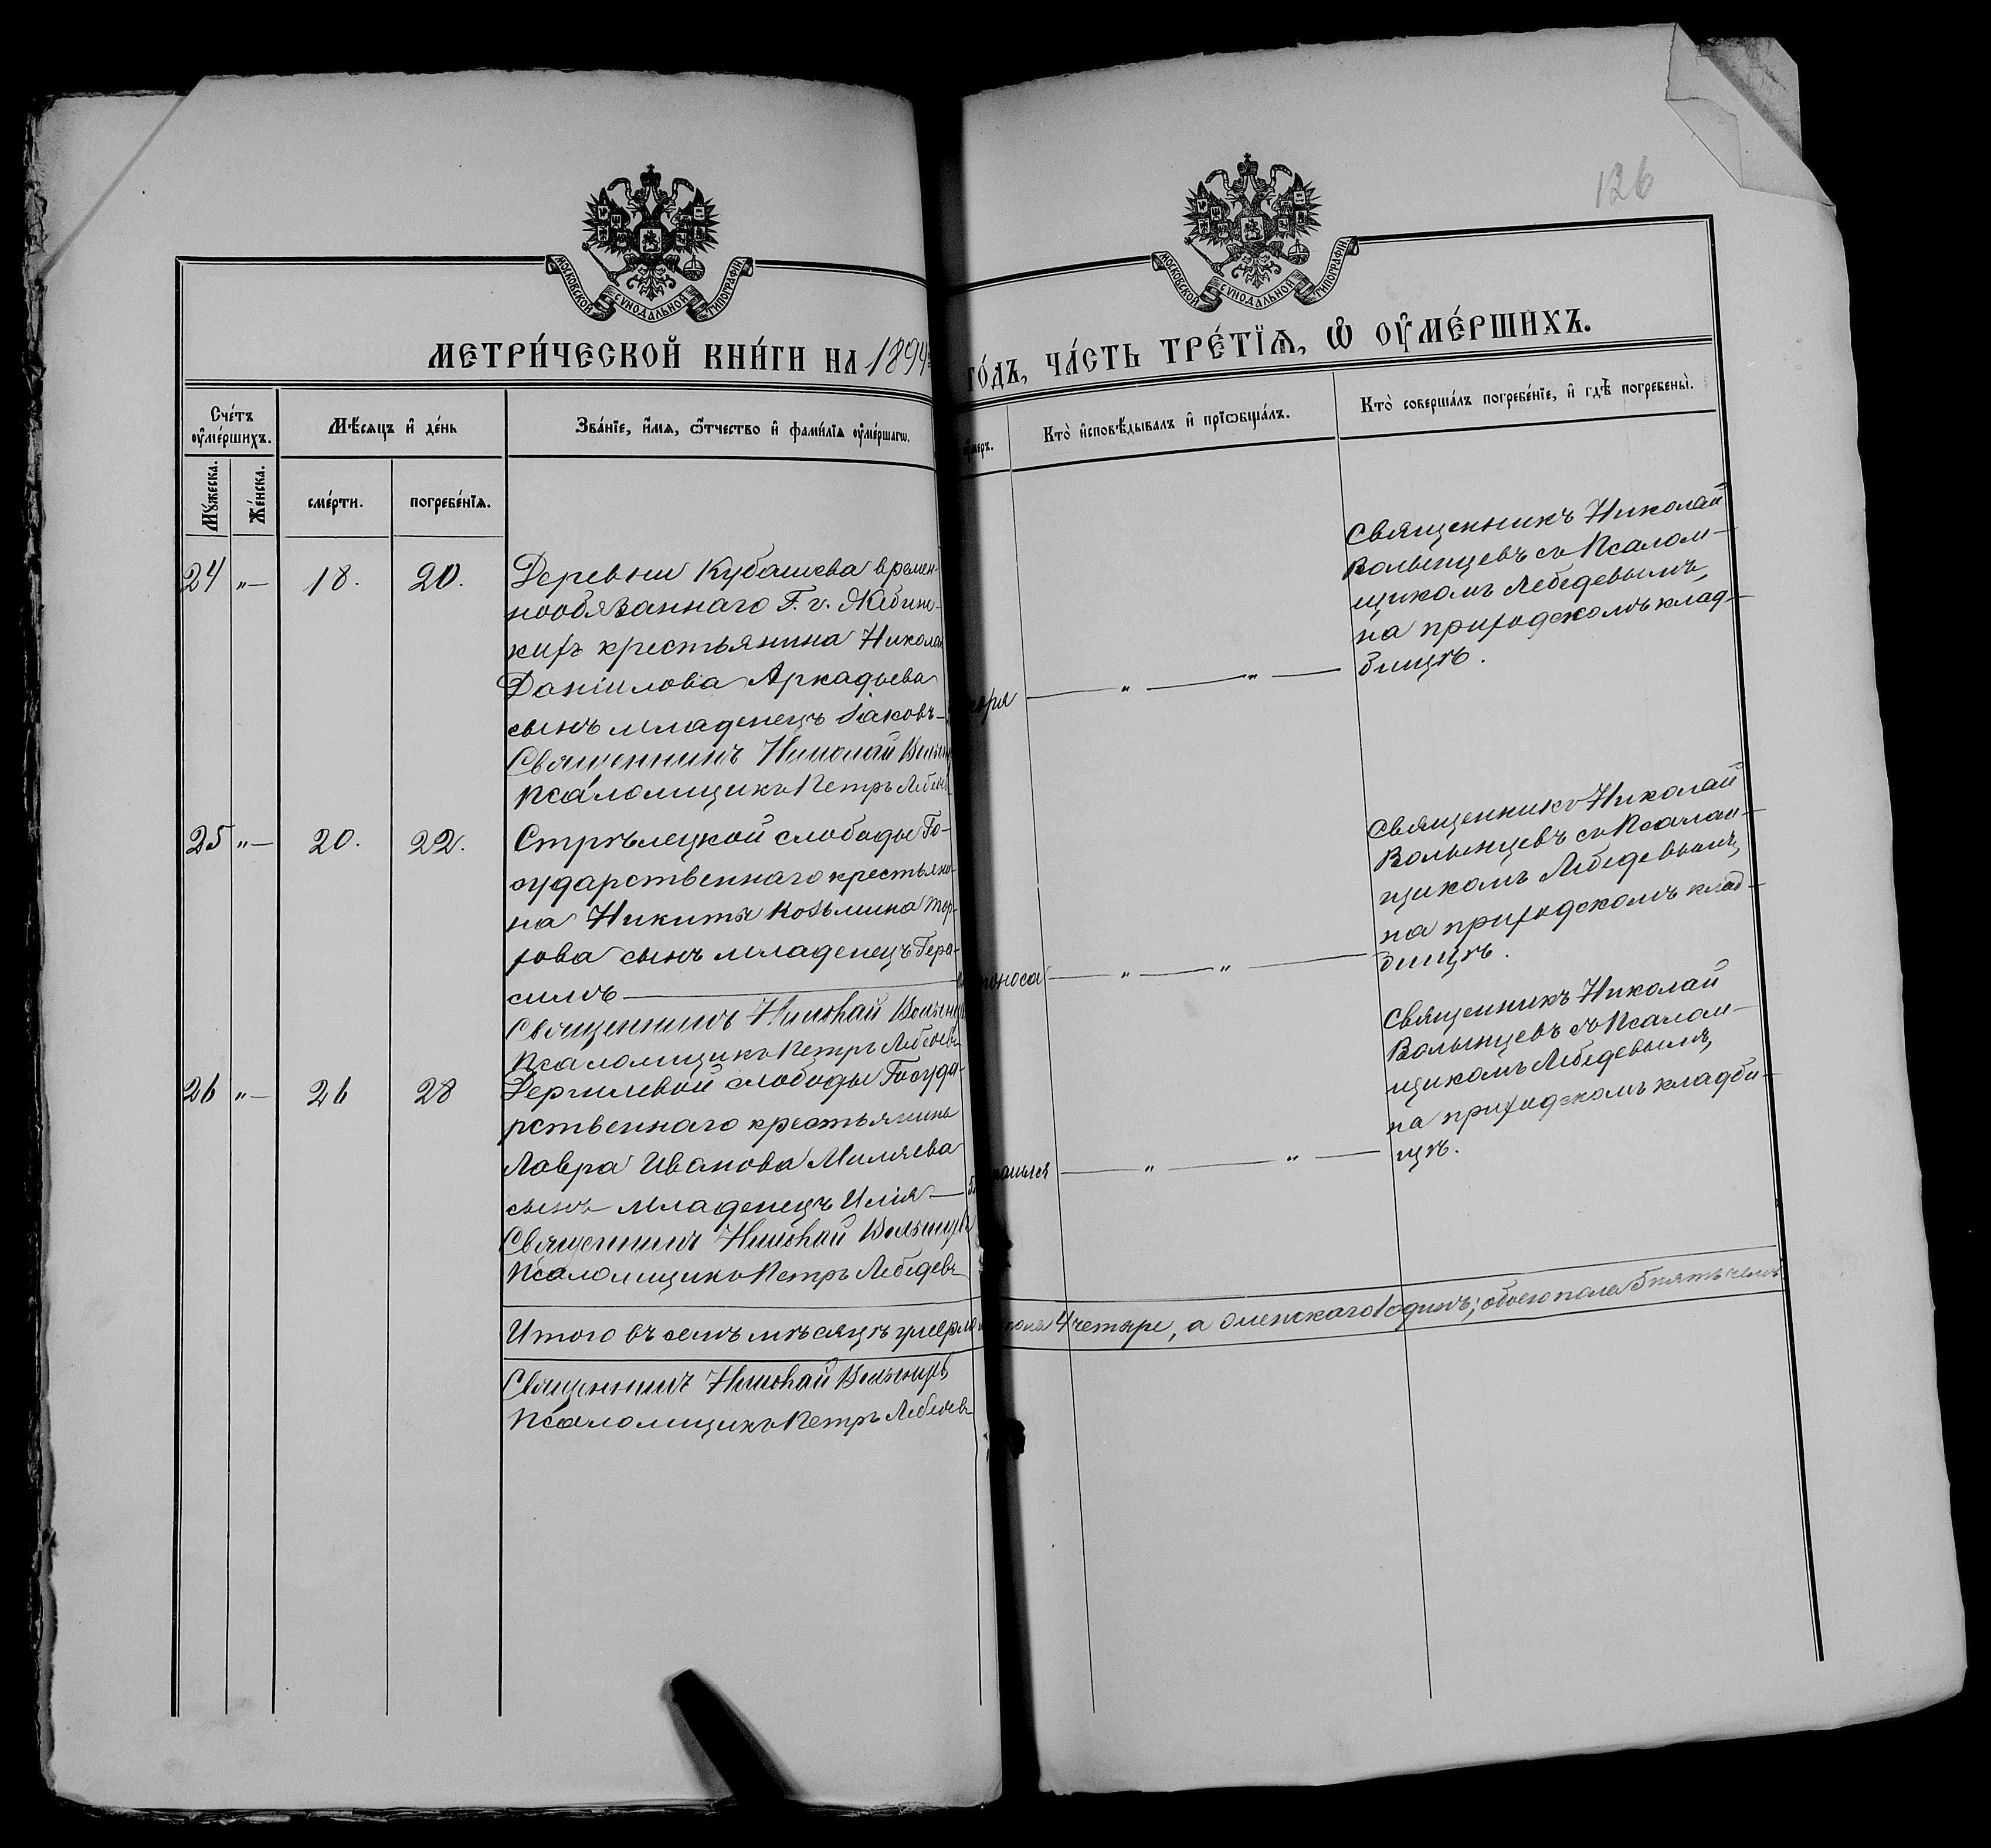 126
МОСКОВСКОЙ СѴНОДАЛЬНОЙ ТИПОГРАФІИ
МОСКОВСКОЙ СѴНОДАЛЬНОЙ ТИПОГРАФІИ
МЕТРИ́ЧЕСКОЙ КНИ́ГИ НА 1894
ГО́ДЪ, ЧА́СТЬ ТРЕ́ТЇѦ, Ѡ҆ ОУ҆МЕ́РШИХЪ.
Сче́тъ оу҆ме́ршихъ.
Мѣ́сяцъ и҆ де́нь
Зва́нїе, и҆́мя, ѻ҆́тчество и҆ фами́лїя оу҆ме́ршагѡ.
оу҆меръ.
Кто̀ и҆сповѣ́дывалъ и҆ прїѡбща́лъ.
Кто̀ соверша́лъ погребе́нїе, и҆ гдѣ̀ погребены̀.
Мꙋ́жеска.
Же́нска.
сме́рти.
погребе́нїѧ.
24 „— 18. 20.
Деревни Кубашева времен-
нообязаннаго Г. г.
кихъ крестьянина Николая
Даніилова Аркадьева
сынъ младенецъ Іаковъ—
Священникъ Николай
Псаломщикъ Петръ
— „ — „ —
Священникъ Николай
Волынцевъ съ Псалом-
щикомъ Лебедевымъ,
на приходскомъ клад-
бищѣ.
25 „— 20. 22.
Стрѣлецкой слободы Го-
сударственнаго крестьяни-
на Никиты Козьмина
хова сынъ младенецъ Гера-
симъ —
Священникъ Николай
Псаломщикъ Петръ Лебедевъ
поноса — „ — „ —
Священникъ Николай
Волынцевъ съ Псалом-
щикомъ Лебедевымъ,
на приходскомъ клад-
бищѣ.
26 „— 26 28
слободы Госуда-
рственнаго крестьянина
Лавра Иванова Миляева
сынъ младенецъ Илія —
Священникъ Николай Волынцевъ
Псаломщикъ Петръ Лебедевъ
— „ — „ —
Священникъ Николай
Волынцевъ съ Псалом-
щикомъ Лебедевымъ,
на приходскомъ кладби-
щѣ.
Итого въ семъ мѣсяцѣ умерло пола 4 четыре, а женскаго 1 одинъ; обоего пола 5 пять
Священникъ Николай Волынцевъ
Псаломщикъ Петръ Лебедевъ